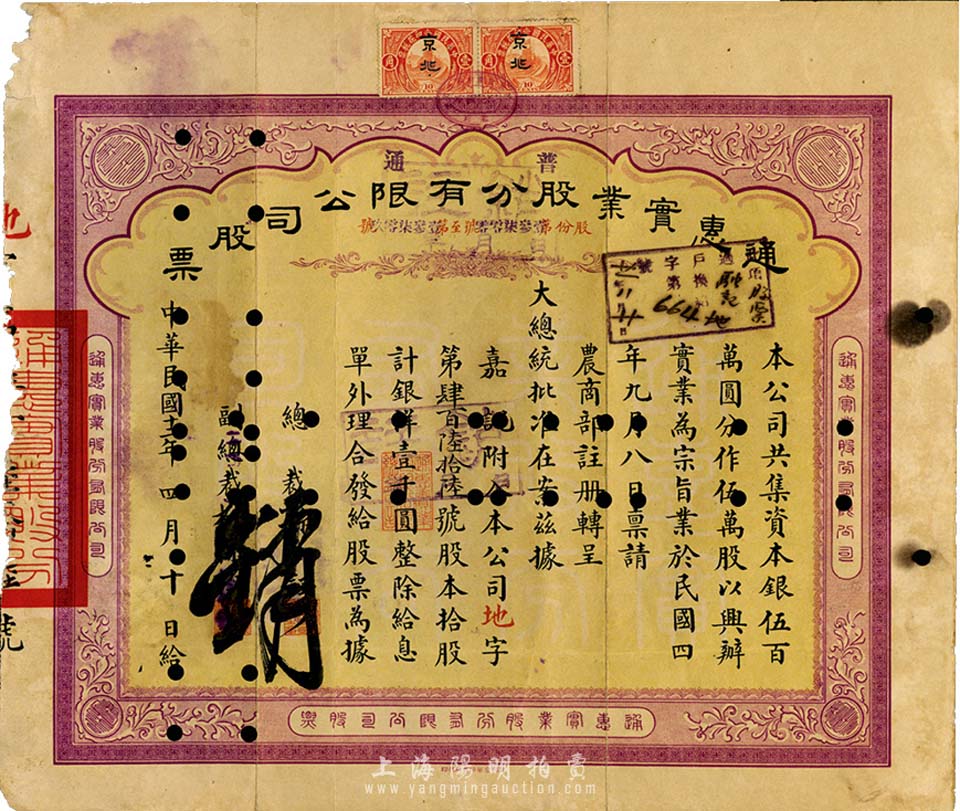 京兆
京兆
普通
通惠實業股分有限公司股票
本公司共集資本銀伍百
萬圓分作伍萬股以興辦
實業為宗旨業於民國四
年九月八日稟請
農商部註册轉呈
大總統批准在案茲據
嘉說附入本公司地字
第肆百陸拾陸號股本拾股
計銀洋壹千圓整除給息
單外理合發給股票為據
總裁
副總裁
中華民國十二年四月十日給
664
地
通惠實業股份有限公司
通惠實業股份有限公司
通惠實業股份有限公司股票
上海陽明拍賣
www.yangmingauction.com